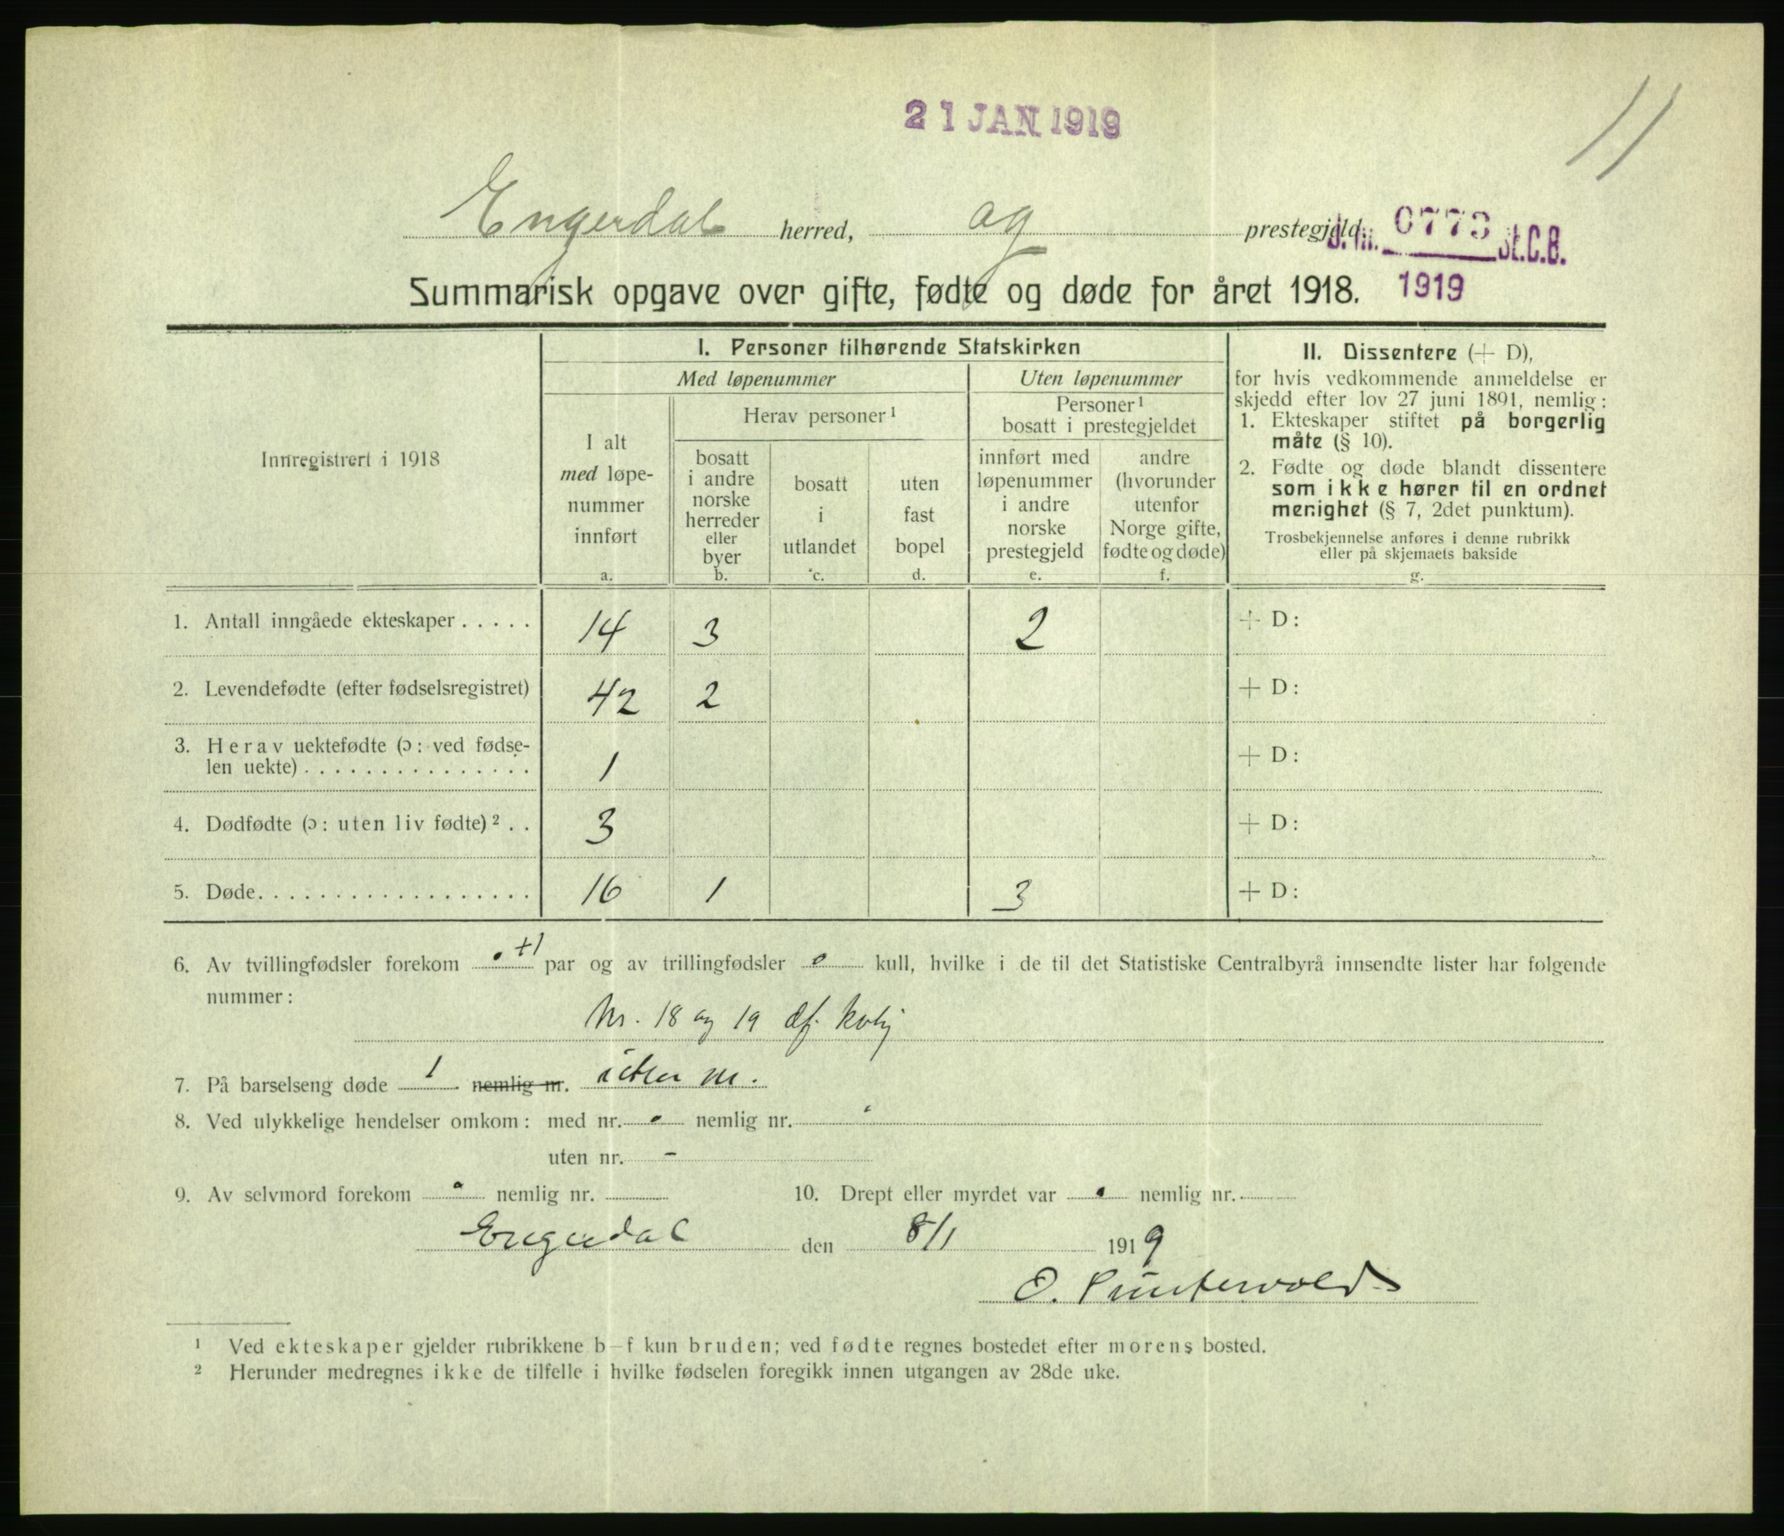 21 JAN 1919
11
Engerdal herred, og prestegjeld.
J. nr. 0773 St.C.B.
1919
Summarisk opgave over gifte, fødte og døde for året 1918.
Innregistrert i 1918
I. Personer tilhørende Statskirken
Med løpenummer
Uten løpenummer
I alt
med løpe-
nummer
innført
a.
Herav personer ¹
bosatt
i andre
norske
herreder
eller
byer
b.
bosatt
i
utlandet
c.
uten
fast
bopel
d.
Personer ¹
bosatt i prestegjeldet
innført med
løpenummer
i andre
norske
prestegjeld
e.
andre
(hvorunder
utenfor
Norge gifte,
fødte og døde)
f.
II. Dissentere (+ D),
for hvis vedkommende anmeldelse er
skjedd efter lov 27 juni 1891, nemlig:
1. Ekteskaper stiftet på borgerlig
måte (§ 10).
2. Fødte og døde blandt dissentere
som ikke hører til en ordnet
menighet (§ 7, 2det punktum).
Trosbekjennelse anføres i denne rubrikk
eller på skjemaets bakside
g.
1. Antall inngåede ekteskaper . . . . . 14 3 2 + D:
2. Levendefødte (efter fødselsregistret) 42 2 + D:
3. Herav uektefødte (ɔ: ved fødse-
len uekte) . . . . . . . . . . . . . . . 1 + D:
4. Dødfødte (ɔ: uten liv fødte) ² . . 3 + D:
5. Døde. . . . . . . . . . . . . . . . . . 16 1 3 + D:
6. Av tvillingfødsler forekom +1 par og av trillingfødsler o kull, hvilke i de til det Statistiske Centralbyrå innsendte lister har følgende
nummer:
Nr. 18 og 19
7. På barselseng døde 1 nemlig nr.
8. Ved ulykkelige hendelser omkom: med nr. nemlig nr.
uten nr. -
9. Av selvmord forekom nemlig nr. 10. Drept eller myrdet var nemlig nr.
Engerdal den 8/1 1919
¹ Ved ekteskaper gjelder rubrikkene b–f kun bruden; ved fødte regnes bostedet efter morens bosted.
² Herunder medregnes ikke de tilfelle i hvilke fødselen foregikk innen utgangen av 28de uke.